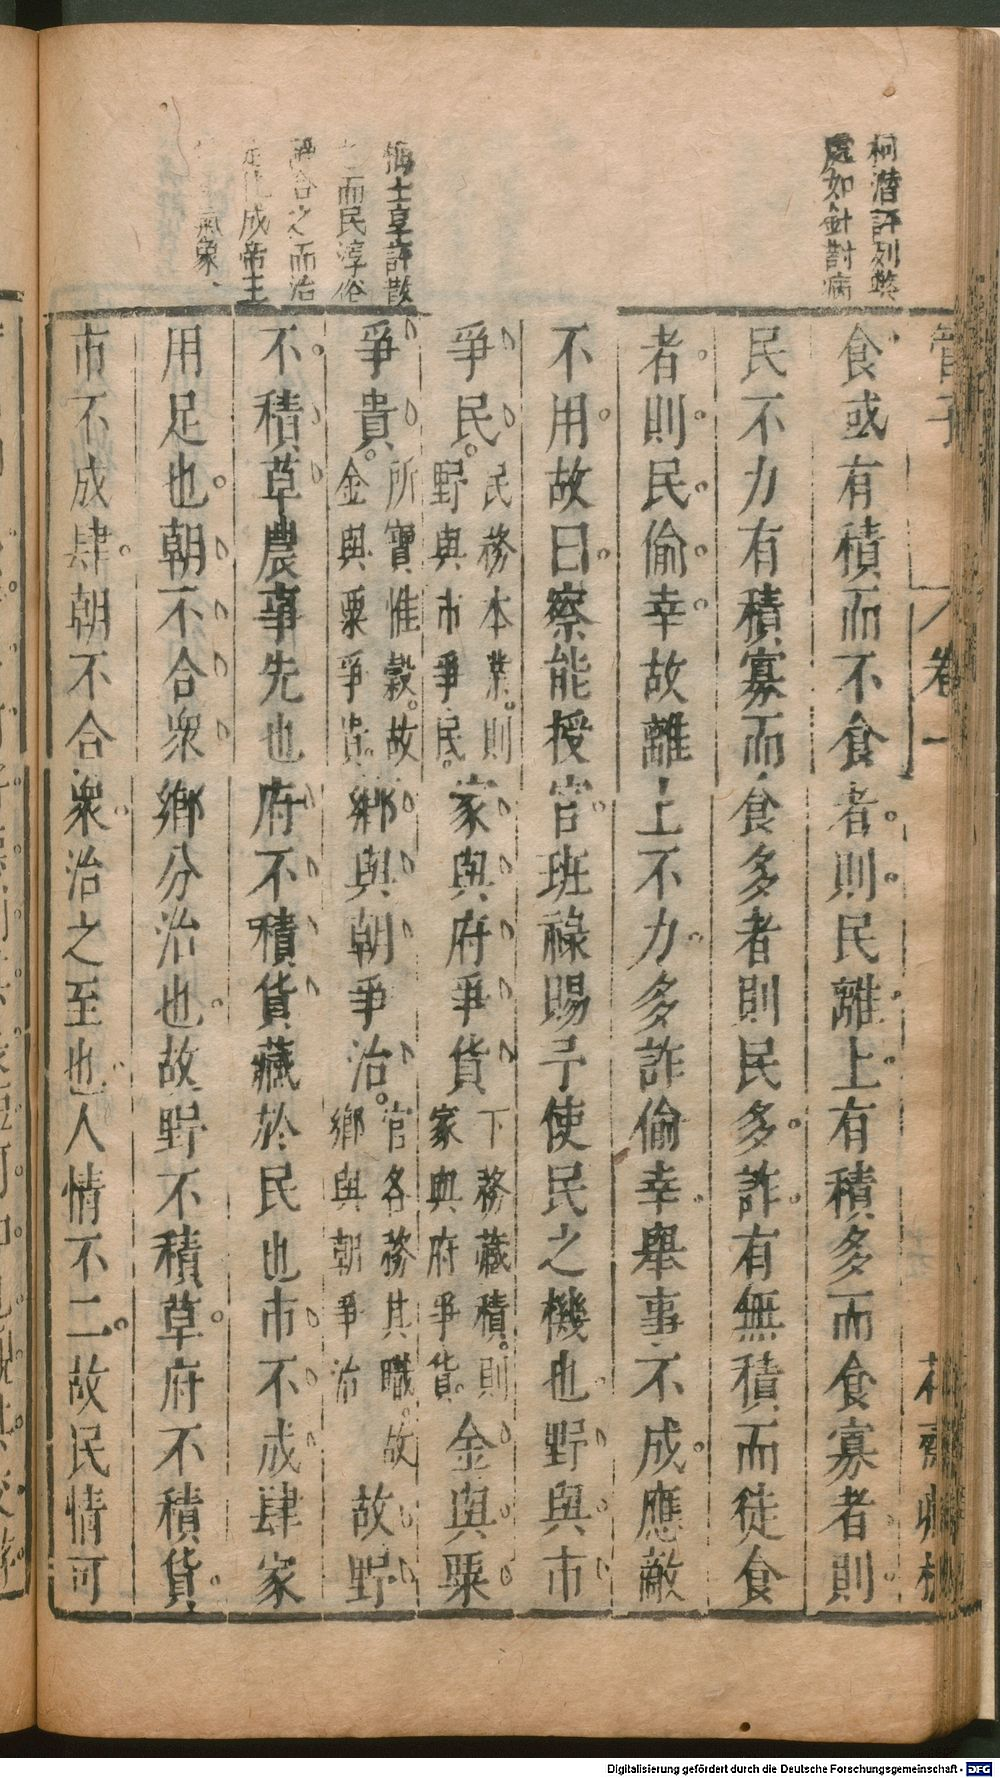 管子
卷一
柯潛評列弊
處如針對病
食或有積而不食者則民離上有積多而食寡者則
民不力有積寡而食多者則民多詐有無積而徒食
者則民偷幸故離上不力多詐偷幸舉事不成應敵
不用故曰察能授官班祿賜予使民之機也野與市
爭民。民務本業。則野與市爭民。家與府爭貨下務藏積。則家與府爭貨。金與粟
爭貴。所寶惟穀。故金與粟爭貴。鄉與朝爭治。官各務其職。故鄉與朝爭治故野
不積草農事先也府不積貨藏於民也市不成肆家
用足也朝不合衆鄉分治也故野不積草府不積貨
市不成肆朝不合衆治之至也人情不二故民情可
梅士享評散
之而民淳俗
合之而治
化成帝王
氣象、
Digitalisierung gefördert durch die Deutsche Forschungsgemeinschaft - DFG